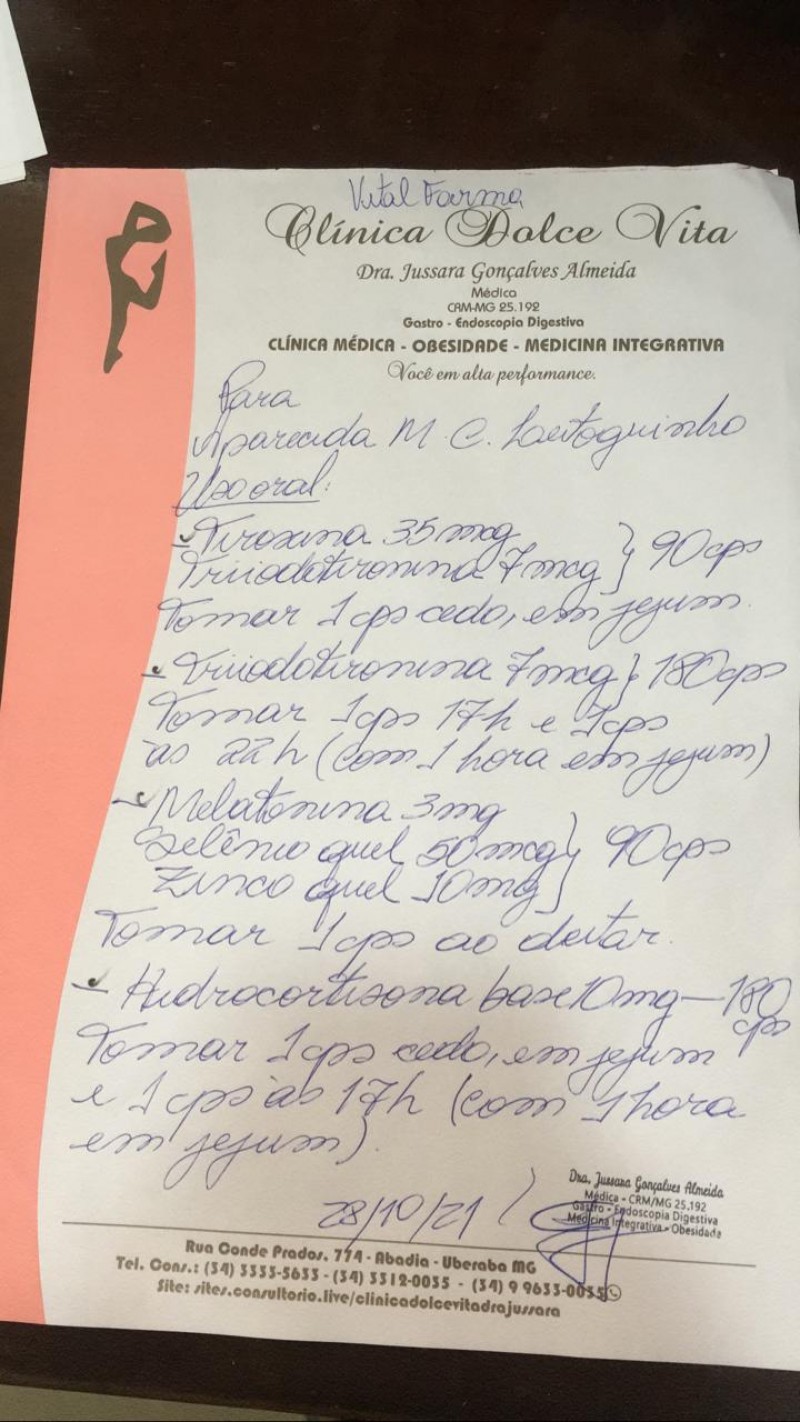 Vital Farma
Clínica Dolce Vita
Dra. Jussara Gonçalves Almeida
Médica
CRM-MG 25.192
Gastro - Endoscopia Digestiva
CLÍNICA MÉDICA - OBESIDADE - MEDICINA INTEGRATIVA
Você em alta performance.
Para
Aparecida M. C.
Uso oral:
- Tiroxina 35 mcg
Triiodotironina 7 mcg } 90 cps
Tomar 1 cps cedo, em jejum.
- Triiodotironina 7 mcg } 180 cps
Tomar 1 cps 17h e 1 cps
às 22h (com 1 hora em jejum)
- Melatonina 3mg
Selênio quel 50mcg } 90 cps
Zinco quel 10mg
Tomar 1 cps ao deitar.
- Hidrocortisona base 10mg — 180
cps
Tomar 1 cps cedo, em jejum
e 1 cps às 17h (com 1 hora
em jejum).
28/10/21
Dra. Jussara Gonçalves Almeida
Médica - CRM/MG 25.192
Gastro - Endoscopia Digestiva
Medicina Integrativa - Obesidade
Rua Conde Prados, 774 - Abadia - Uberaba MG
Tel. Cons.: (34) 3333-5633 - (34) 3312-0035 - (34) 9 9633-0035
Site: sites.consultorio.live/clinicadolcevitadrajussara